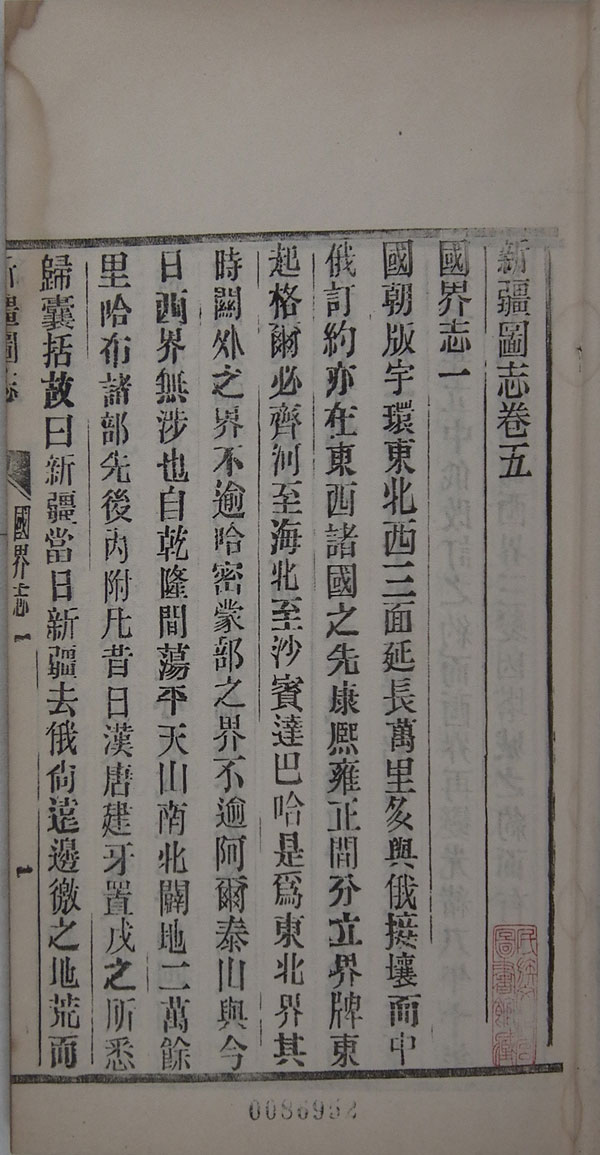 新疆圖志卷五
國界志一
國朝版宇環東北西三面延長萬里多與俄接壤而中
俄訂約亦在東西諸國之先康熙雍正間分立界牌東
起格爾必齊河至海北至沙賓達巴哈是爲東北界其
時關外之界不逾哈密蒙部之界不逾阿爾泰山與今
日西界無涉也自乾隆間蕩平天山南北闢地二萬餘
里哈布諸部先後內附凡昔日漢唐建牙置戍之所悉
歸囊括故曰新疆當日新疆去俄尙遠邊徼之地荒而
新疆圖志
國界志一
一
0086952